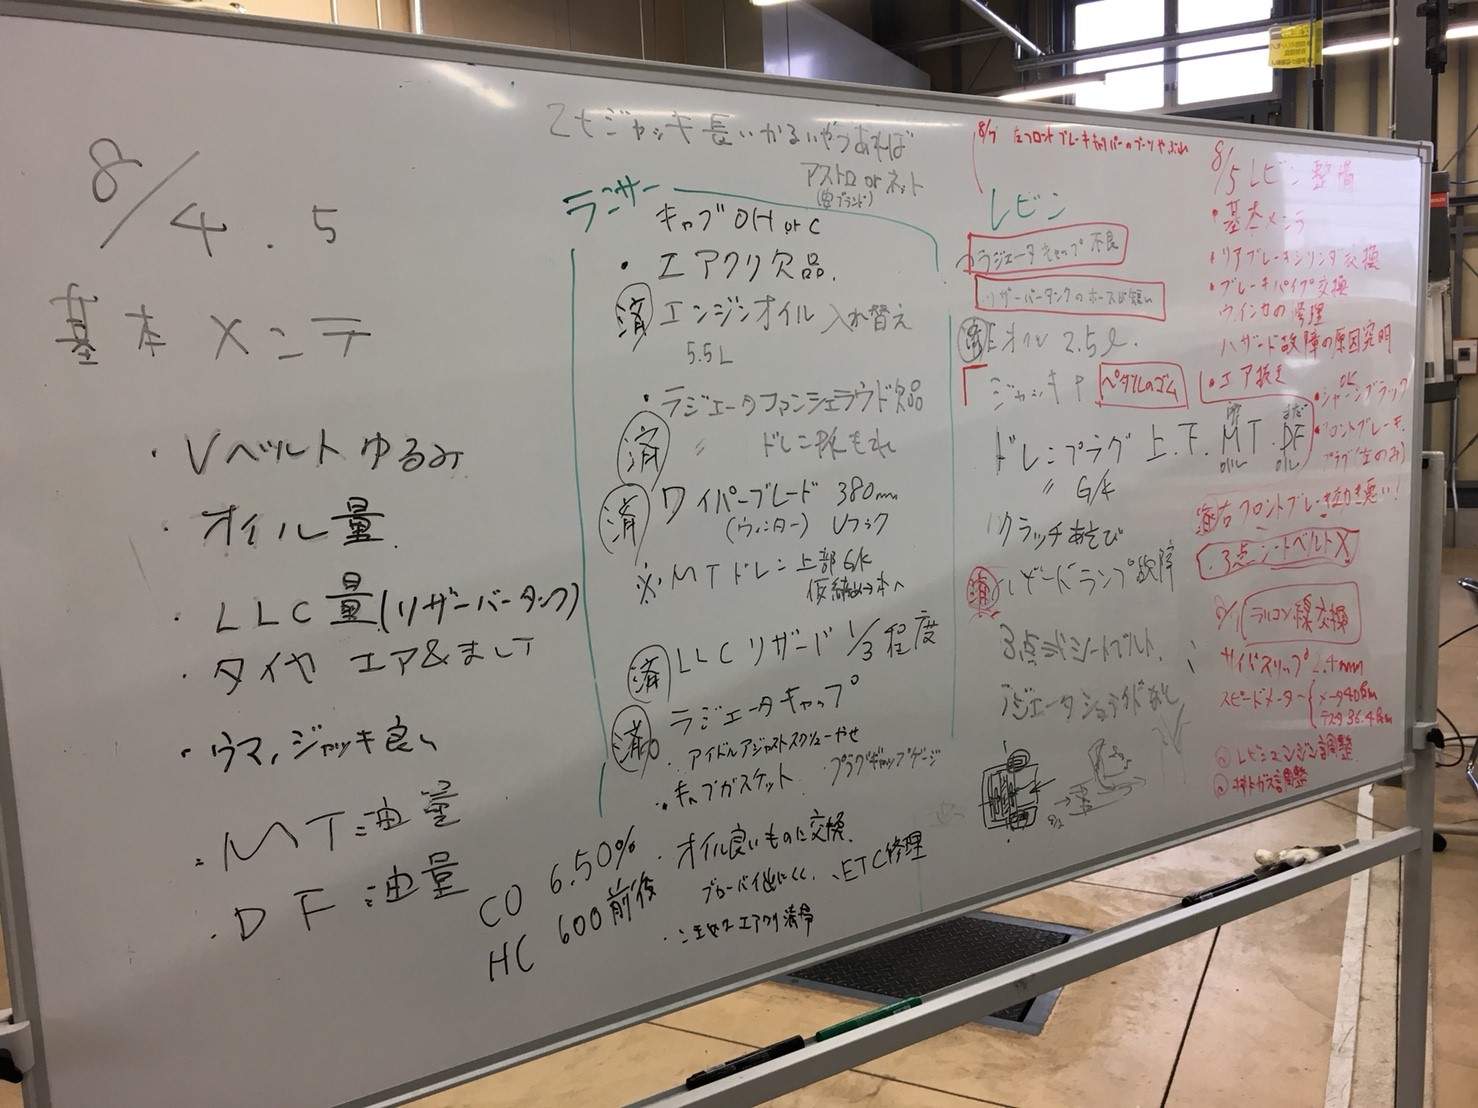 8/4.5
基本メンテ
・Vベルトゆるみ
・オイル量
・LLC量(リザーバータンク)
・タイヤ エア&まし
・ウマ,ジャッキ良い
・MT油量
・DF油量
CO 6.50%
HC 600前後
2tジャッキ長いかるいやつあれば
アストロ or ネット
ランサー
キャブOH or C
・エアクリ欠品.
済 エンジンオイル 入れ替え
5.5L
・ラジエータファンシュラウド欠品
済 〃 ドレンもれ
済 ワイパーブレード 380mm
(ウィンター) Uフック
※MTドレン上部G/K
仮締め→本へ
済 LLCリザード 1/3程度
済 ラジエータキャップ
・アイドルアジャストスクリューやせ
・キャブガスケット ・プラグギャップゲージ
・オイル良いものに交換.
ブローバイ
・ETC修理
エアクリ清掃
8/7 左フロントブレーキキャリパーのブーツやぶれ
レビン
ラジエータキャップ不良
リザーバータンクのホースが短い
済 Eオイル 2.5ℓ.
ジャッキP
ペダルのゴム
ドレンプラグ 上.下. MT.DF
済 まだ
オイル オイル
〃 G/K
クラッチあそび
済 ハザードランプ故障
3点式シートベルト
ラジエータシュラウドなし
8/5 レビン整備
・基本メンテ
・リアブレーキシリンダ交換
・ブレーキパイプ交換
ウインカの修理
ハザード故障の原因究明
・エア抜き
OK
・シャーシブラック
・フロントブレーキ.
プラグ(左のみ)
済 右フロントブレーキ効き悪い!
・3点シートベルトX
8/7 ラリコン線交換
サイドスリップ 2.4mm
スピードメーター { メータ40km
テスタ36.4km
レビンエンジン調整
排ガス調整